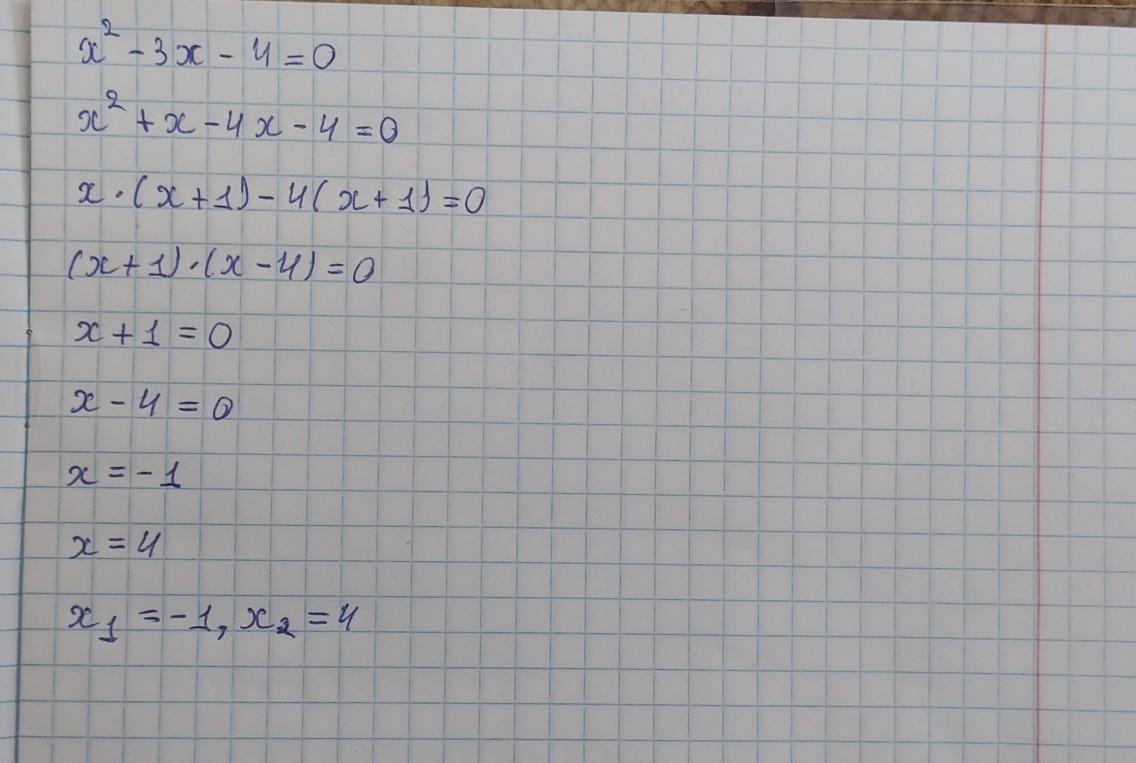 x² - 3x - 4 = 0
x² + x - 4x - 4 = 0
x · (x + 1) - 4(x + 1) = 0
(x + 1) · (x - 4) = 0
x + 1 = 0
x - 4 = 0
x = -1
x = 4
x₁ = -1, x₂ = 4